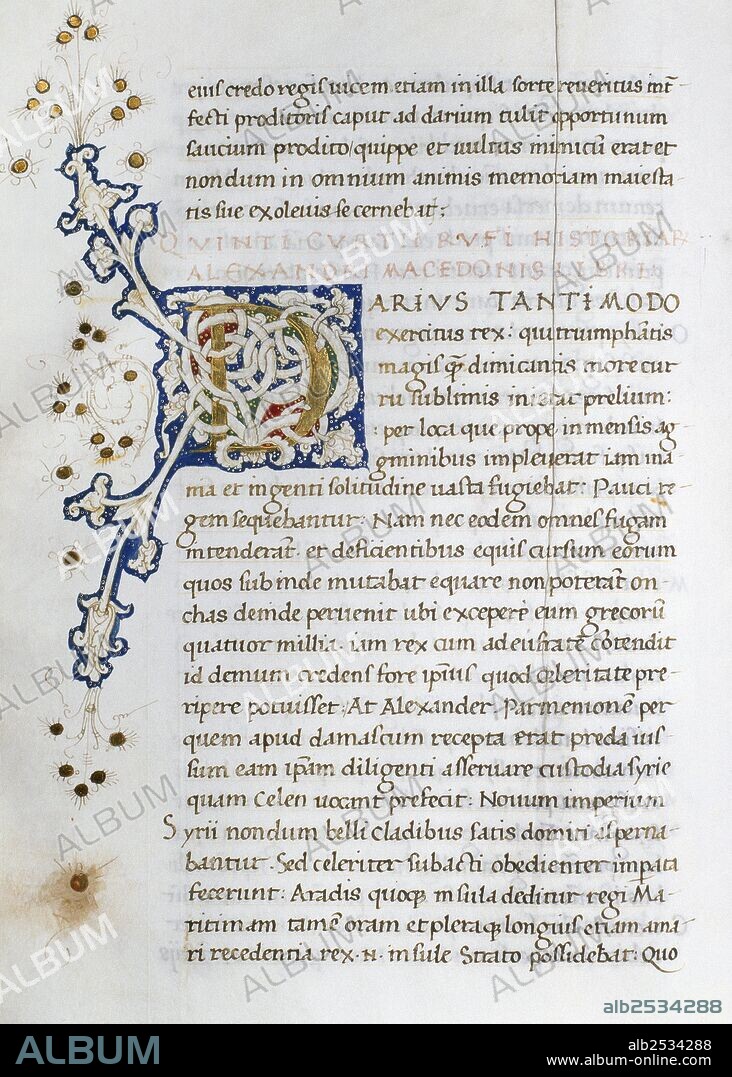 eius credo regis uicem etiam in illa sorte reueritus int̄
fecti proditoris caput ad darium tulit opportunum
saucium prodito/quippe et uultus inimicū erat et
nondum in omnium animis memoriam maiesta
tis sue exoleuisse cernebat;
QVINTI CVRTII RVFI HISTORIAR
ALEXANDRI MACEDONIS LIBRI
DARIVS TANTI MODO
exercitus rex: qui triumphātis
magis q̄ dimicantis more cur
ru sublimis inierat prelium:
: per loca que prope inmensis ag
gminibus impleuerat iam ina
nia et ingenti solitudine uasta fugiebat: Pauci re-
gem sequebantur: Nam nec eodem omnes fugam
intenderāt. et deficientibus equis cursum eorum
quos subinde mutabat equare non poterāt on-
chas deinde peruenit ubi excepere eum grecorū
quatuor millia. iam rex cum ad eufratē cōtendit
id demum credens fore ip̄ius quod celeritate pre-
ripere potuisset: At Alexander Parmenionē per
quem apud damascum recepta erat preda ius-
sum eam ip̄am diligenti asseruare custodia syrie
quam Celen uocant prefecit: Nouum imperium
Syrii nondum belli cladibus satis domiti asperna-
bantur. Sed celeriter subacti obedienter imp̄ata
fecerunt: Aradis quoq; insula deditur regi Ma-
ritimam tamē oram et pleraq; longius etiam a ma-
ri recedentia rex .N. insule Strato possidebat: Quo
ALBUM
alb2534288
ALBUM
alb2534288
www.album-online.com